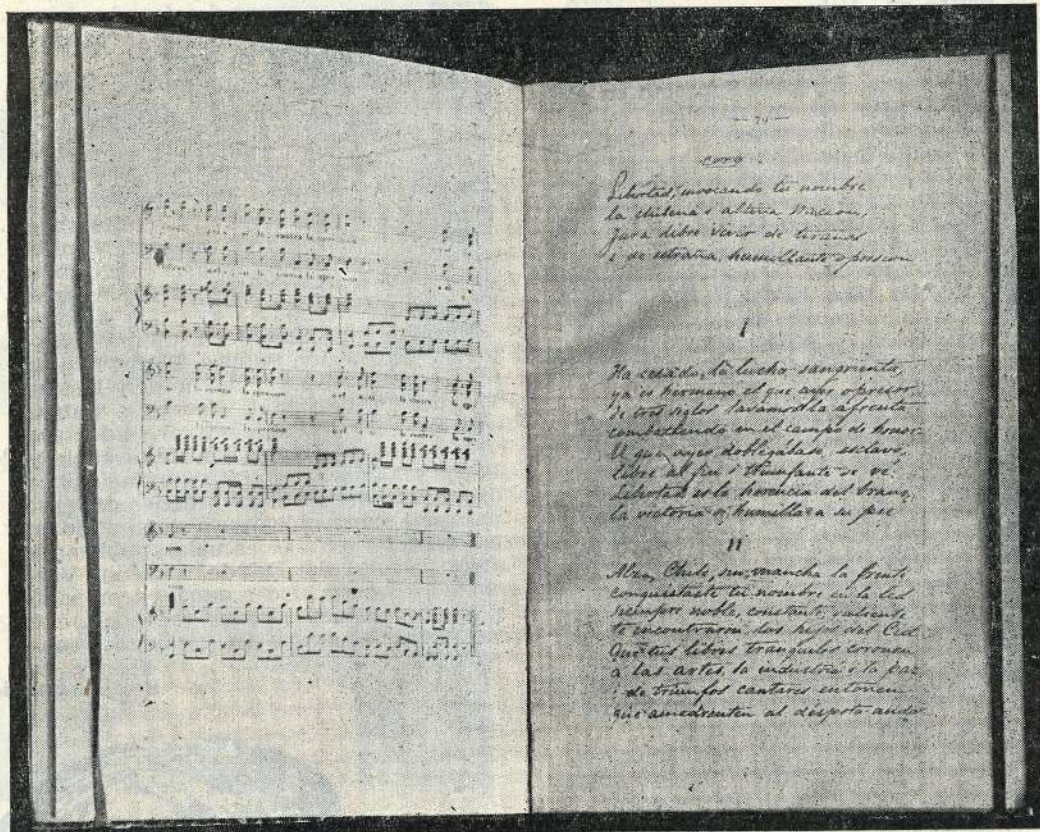 contra la opresión
contra la opresión
— 70 —
coro
Libertad, invocando tu nombre
la chilena i altiva Nacion,
jura libre vivir de tiranos
i de estraña, humillante opresion
I
Ha cesado la lucha sangrienta,
ya es hermano el que ayer opresor
de tres siglos lavamos la afrenta
combatiendo en el campo de honor
El que ayer doblegábase, esclavo,
libre al fin i triunfante se vé.
Libertad es la herencia del bravo,
la victoria se humilla a su pié
II
Alza, Chile, sin mancha la frente
conquistaste tu nombre en la lid
siempre noble, constante, valiente
te encontraron los hijos del Cid.
Que tus libres tranquilos coronen
a las artes, la industria i la paz
i de triunfos cantares entonen
que amedrenten al déspota audaz